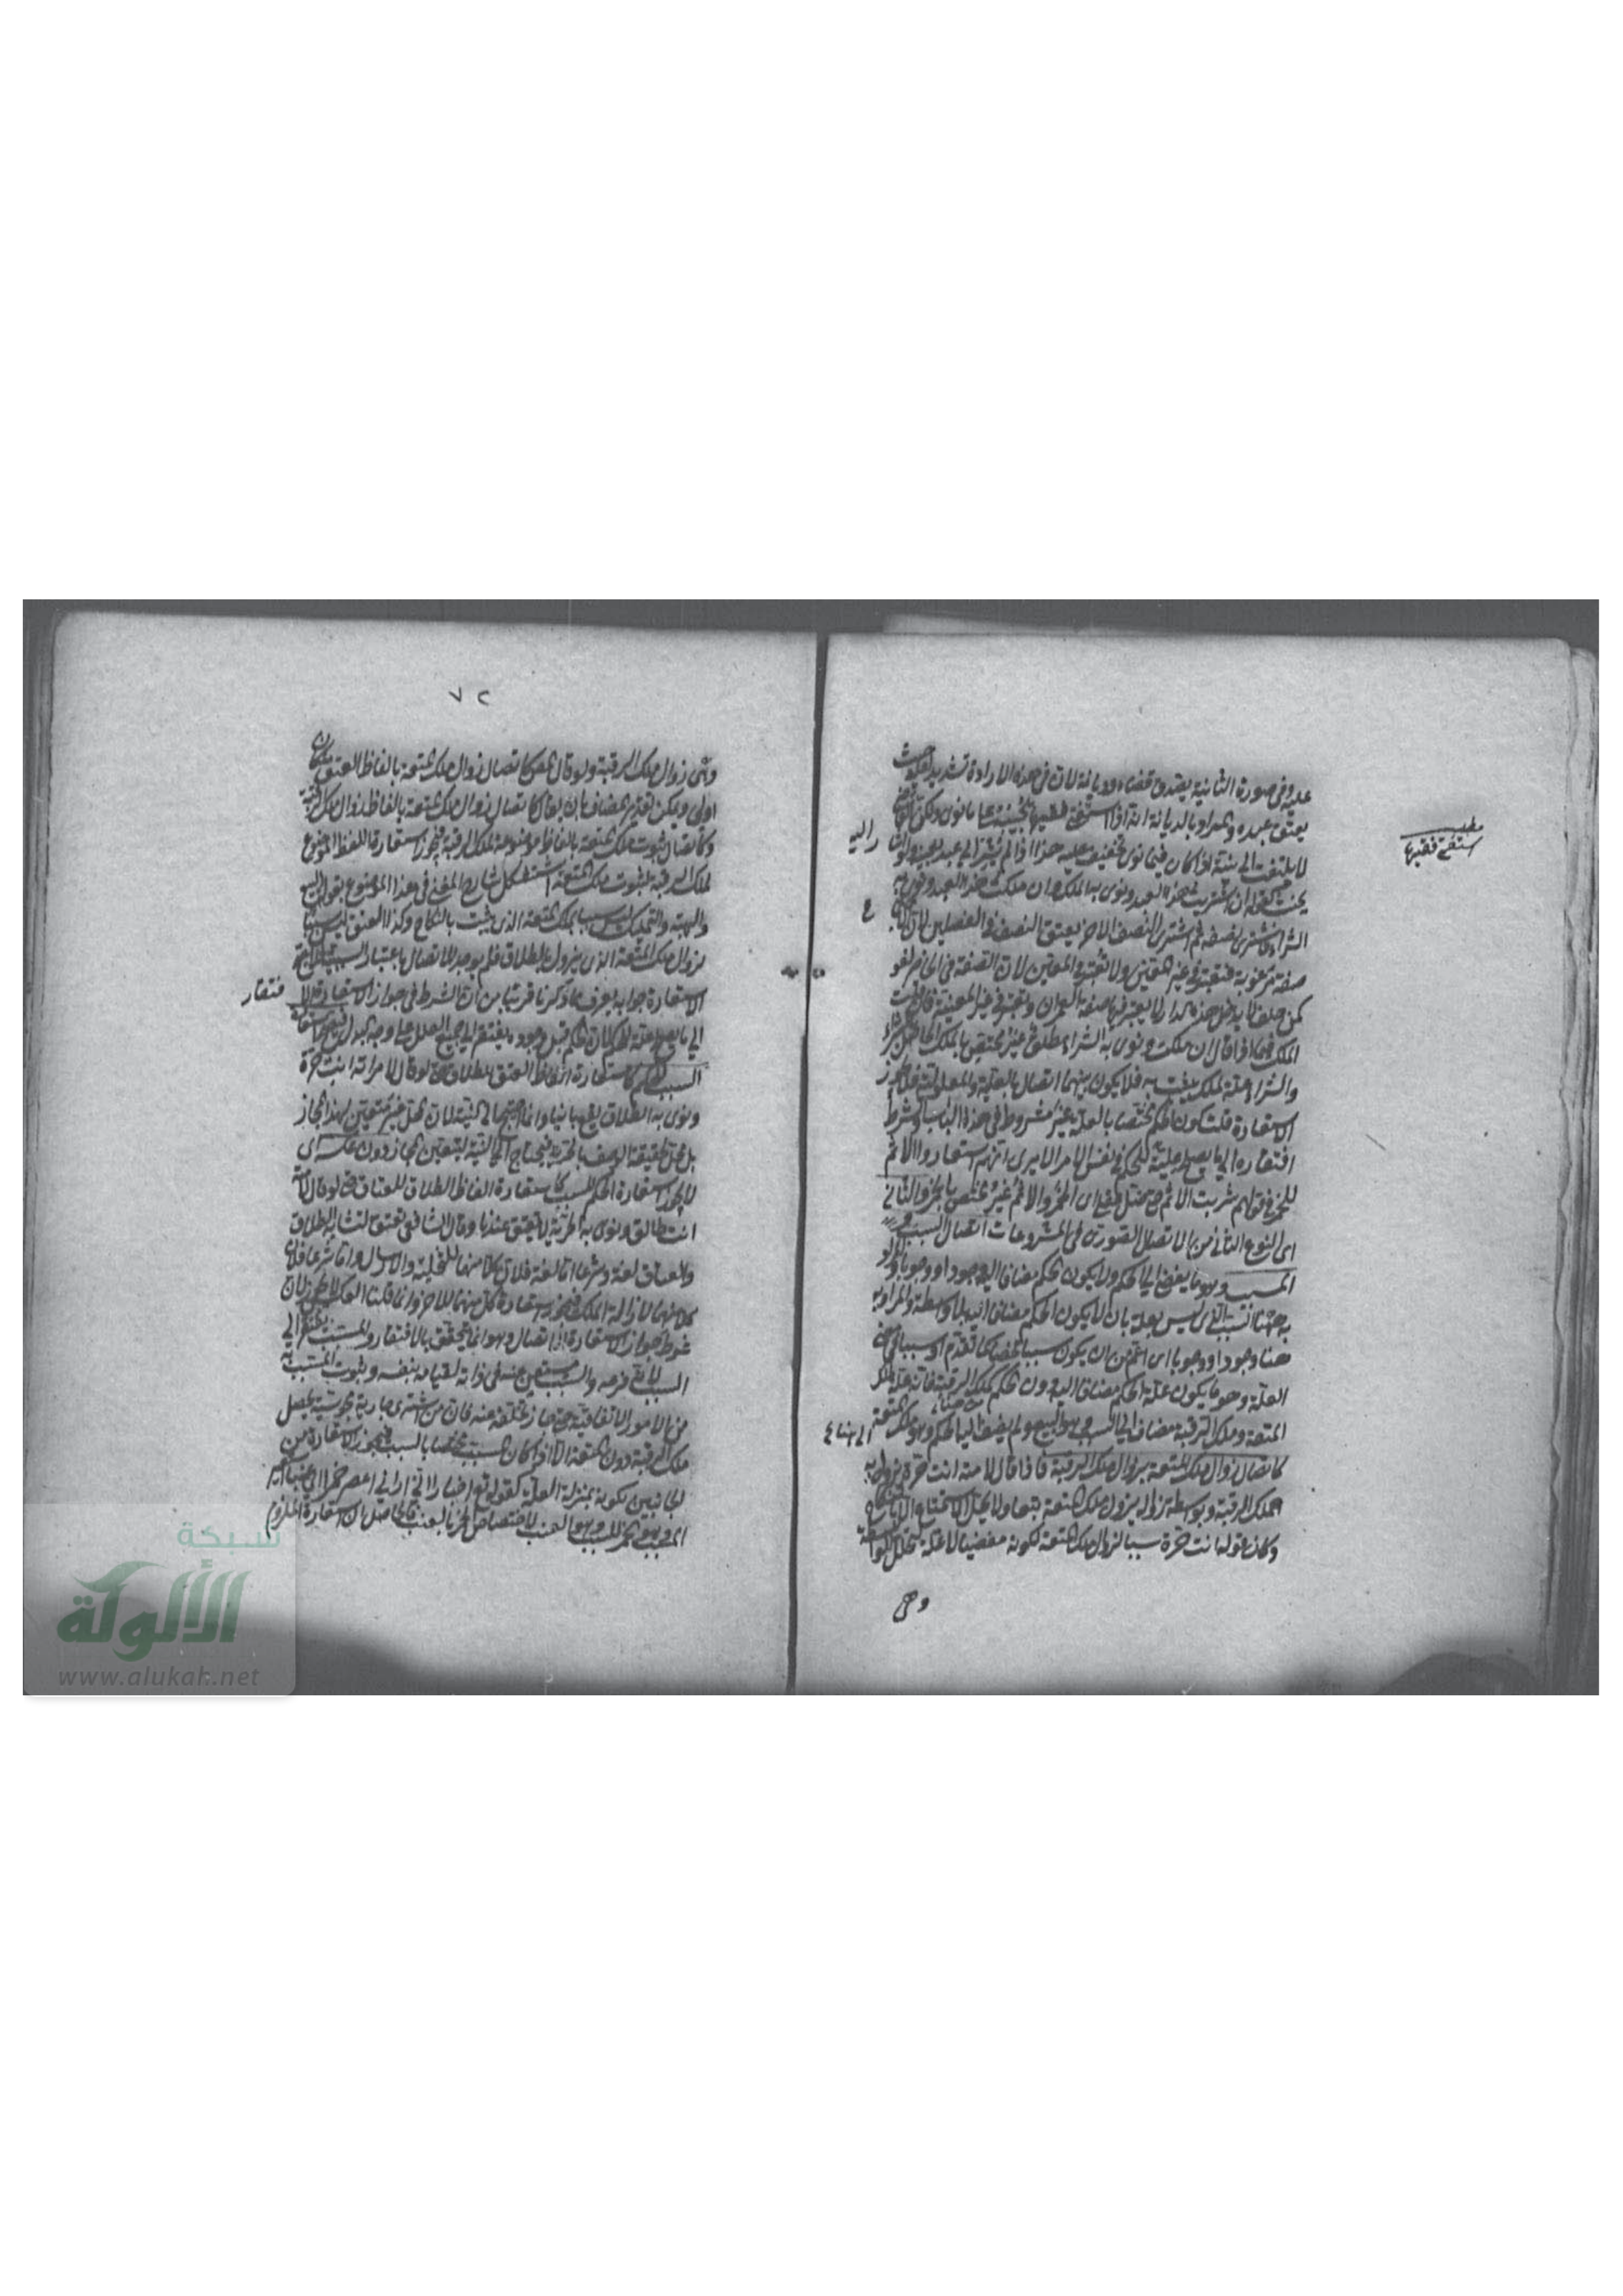 عليه وفي صورة الثانية يصدق قضاء وديانة لان في هذه الارادة تشديد عليه حيث
يعتق عبده والمراد بالديانة انه اذا استفتى فقيها يجيبه على ما نوى ولكن القاضي
لا يلتفت الى نيته اذا كان فيما نوى تخفيف عليه هذا اذا لم يشر الى عبد بعينه
الشراء فاشترى نصفه ثم اشترى النصف الآخر يعتق النصف في الفصلين لان
صفة مرغوبة فتعتبر في غير المعين ولا تعتبر في المعين لان الصفة في الحاضر لغو
كمن حلف لا يدخل هذه الدار لا يعتبر فيها صفة العمران وتعتبر في غير المعينة
الملك فيما اذا قال ان ملكت ونوى به الشراء مطلق غير مختص بالملك الحاصل
والشراء علة لملك يثبت به فلا يكون بينهما اتصال بالعلية والمعلولية فلا يجوز
الاستعارة قلت كون الحكم مختصا بالعلة غير مشروط في هذا الباب والشرط
افتقاره الى ما يصلح علية للحكم في نفس الامر الا يرى انهم استعاروا الاثم
للخمر في قولهم شربت الاثم حتى ضل عقلي اى الخمر والاثم غير مختص بالخمر والثاني
اى النوع الثاني من الاتصال الصوري في المشروعات اتصال السبب
المسبب وهو ما يفضي الى الحكم ولا يكون الحكم مضافا اليه وجودا ووجوبا
به ههنا السبب الذي ليس بعلة بان لا يكون الحكم مضافا اليه بلا واسطة والمراد به
هنا وجودا ووجوبا اى اعم من ان يكون سببا محضا كما تقدم او سببا في معنى
العلة وهو ما يكون علة الحكم مضافا اليه دون الحكم كملك الرقبة فانه علة لملك
المتعة وملك الرقبة مضاف الى السبب وهو البيع ولم يضف اليه الحكم وهو ملك المتعة
كاتصال زوال ملك المتعة بزوال ملك الرقبة فاذا قال لامته انت حرة يزول به
الملك الرقبة وبواسطة زواله يزول ملك المتعة تبعا ولا يحل الاستمتاع الا بالنكاح
وكان قوله انت حرة سببا لزوال ملك المتعة لكونه مفضيا لا علة لتخلل الواسطة
وهي
مطلب
استفتى فقيها
٧٢
وهي زوال ملك الرقبة ولو قال المص كاتصال زوال ملك المتعة بالفاظ العتق لكان
اولى ويمكن تقدير المضاف بان يقال كاتصال زوال ملك المتعة بالفاظ زوال ملك الرقبة
وكاتصال ثبوت ملك المتعة بالفاظ موضوعة لملك الرقبة فيجوز استعارة اللفظ الموضوع
لملك الرقبة لثبوت ملك المتعة استشكل شارح المغني في هذا الموضوع بقوله البيع
والهبة والتمليك ليس سببا لملك المتعة الذي يثبت بالنكاح وكذا العتق ليس سببا
لزوال ملك المتعة الذي يزول بالطلاق فلم يوجد الاتصال باعتبار السببية
الاستعارة جوابه يعرف بما ذكرنا قريبا من ان الشرط في جواز الاستعارة
الى ما يصلح علة للحكم لان الحكم قبل وجوده يفتقر الى جميع العلل على وجه البدل
السبب للحكم كاستعارة الفاظ العتق للطلاق حتى لو قال لامراته انت حرة
ونوى به الطلاق يقع بائنا وانما احتيج الى النية لان المحل غير متعين لهذا المجاز
بل محل لحقيقة الوصف بالحرية فيحتاج الى النية ليتعين المجاز دون عكسه اى
لا يجوز استعارة الحكم للسبب كاستعارة الفاظ الطلاق للعتاق حتى لو قال لامته
انت طالق ونوى به الحرية لا تعتق عندنا وقال الشافعي تعتق لتشابه الطلاق
والعتاق لغة وشرعا اما لغة فلان كلا منهما للتخلية والارسال واما شرعا فلان
كلا منهما لازالة الملك فيجوز استعارة كل منهما للآخر وانما قلنا العكس لا يجوز لان
شرط جواز الاستعارة الاتصال وهو انما يتحقق بالافتقار والمسبب يفتقر الى
السبب لانه فرعه والسبب مستغن عنه في ذاته لقيامه بنفسه وثبوت المسبب به
من الامور الاتفاقية حتى جاز تخلفه عنه فان من اشترى جارية مجوسية يحصل
ملك الرقبة دون المتعة الا اذا كان المسبب مختصا بالسبب فيجوز الاستعارة من
الجانبين لكونه بمنزلة العلة كقوله تع اخبارا اني اراني اعصر خمرا اى عنبا
المسبب وهو الخمر للسبب وهو العنب لاختصاص الخمر بالعنب فالحاصل ان استعارة الملزوم
فتقار
شبكة
الألوكة
www.alukah.net